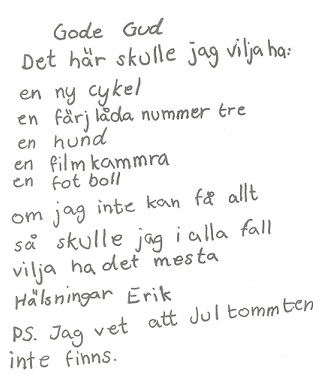 Gode Gud
Det här skulle jag vilja ha:
en ny cykel
en färj låda nummer tre
en hund
en film kammra
en fot boll
om jag inte kan få allt
så skulle jag i alla fall
vilja ha det mesta
Hälsningar Erik
PS. Jag vet att Jul tommten
inte finns.